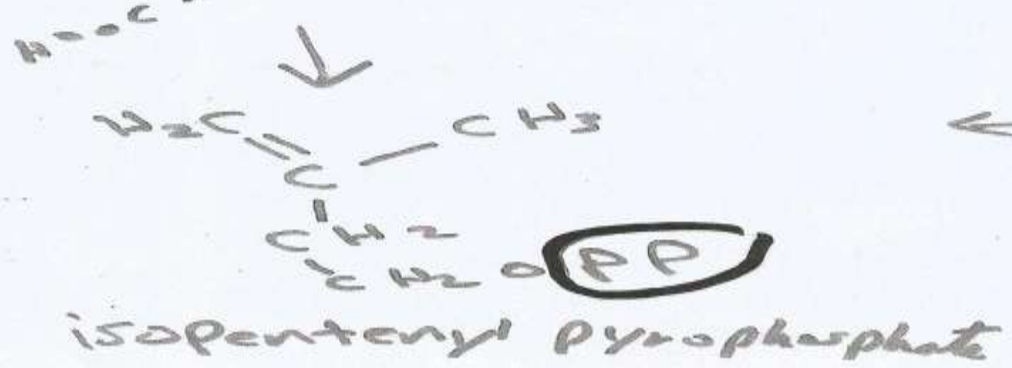 H--C
H2C
CH3
C
CH2
CH2 O PP
isopentenyl pyrophosphate